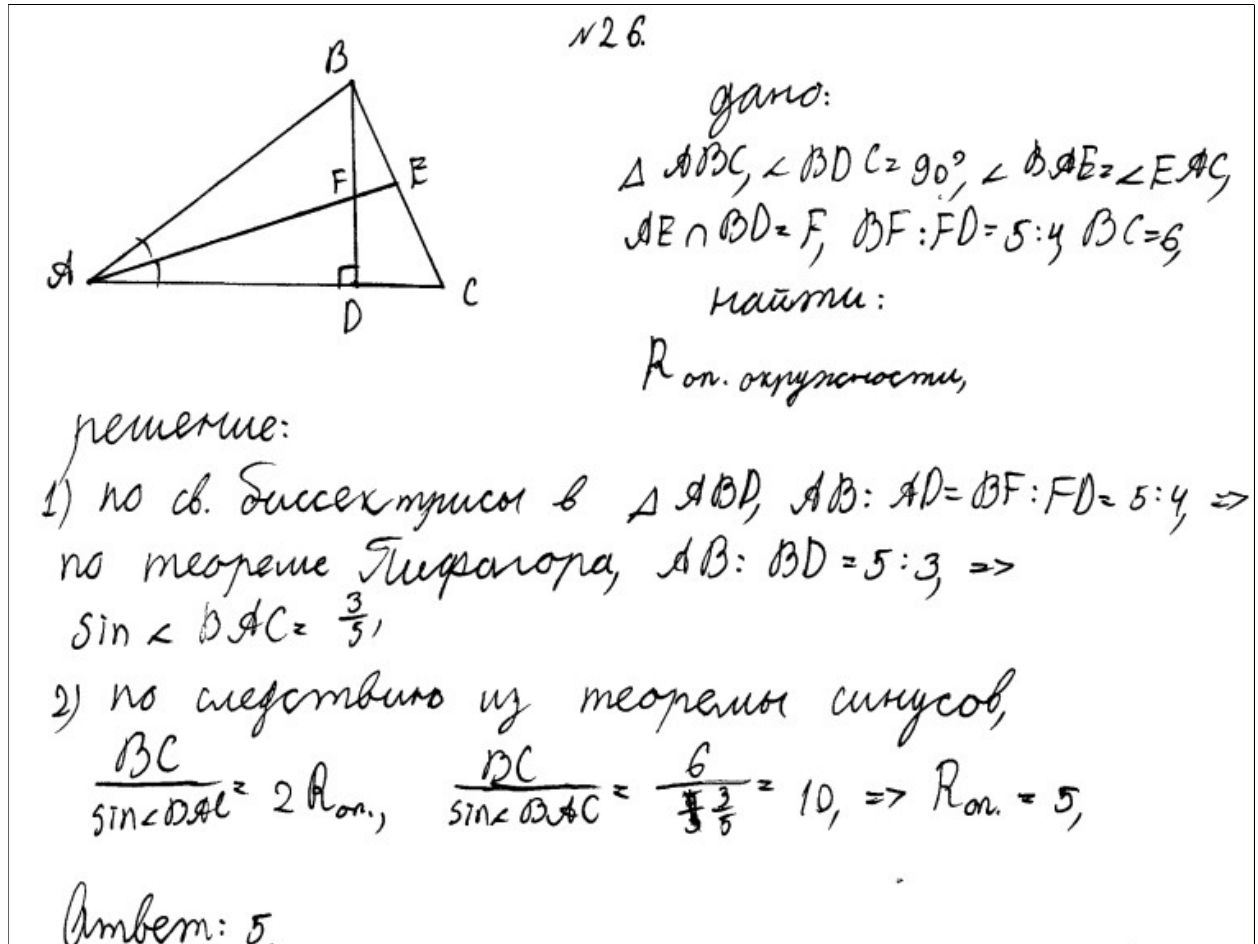 №26.
B
дано:
△ ABC, ∠ BDC = 90°, ∠ BAE = ∠ EAC,
F E
AE ∩ BD = F, BF : FD = 5 : 4, BC = 6,
A
D
C
найти:
R оп. окружности,
решение:
1) по св. биссектрисы в △ ABD, AB : AD = BF : FD = 5 : 4, =>
по теореме Пифагора, AB : BD = 5 : 3, =>
sin ∠ BAC = 3/5,
2) по следствию из теоремы синусов,
BC / sin∠BAC = 2 R оп., BC / sin∠BAC = 6 / 3/5 = 10, => R оп. = 5,
Ответ: 5.